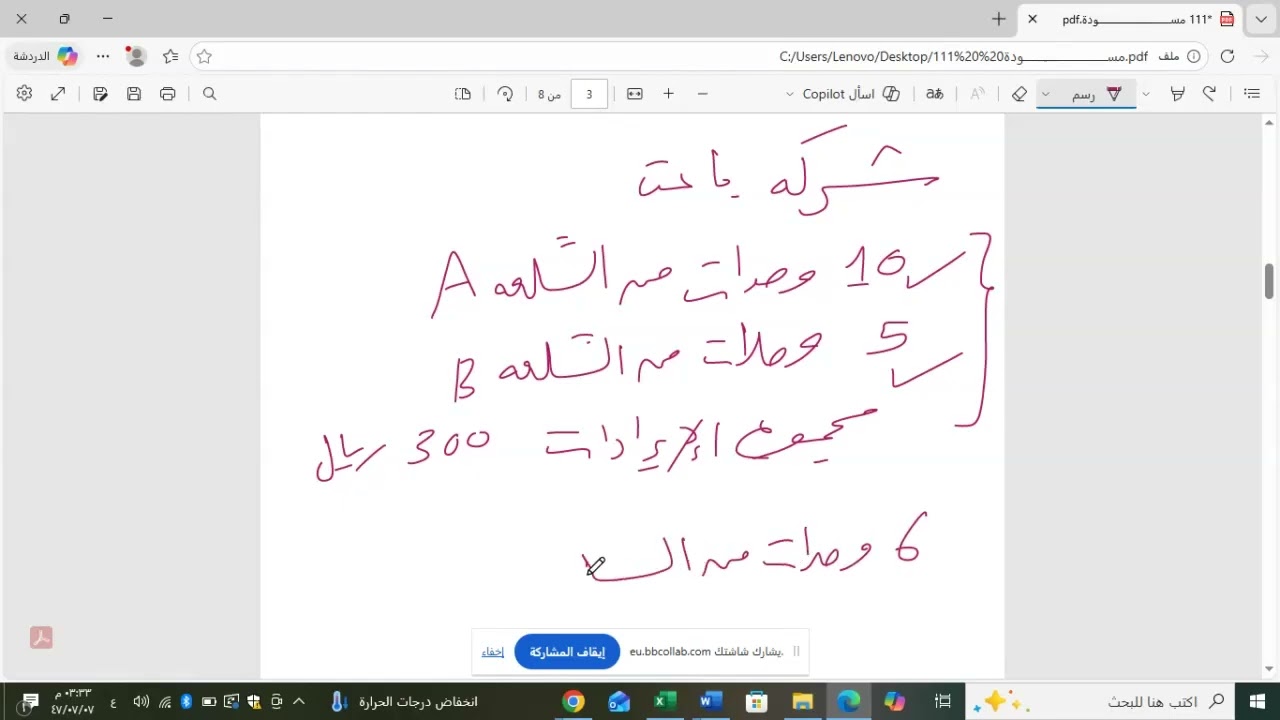 *111 مســـــــــودة.pdf
الدردشة
ملف C:/Users/Lenovo/Desktop/111%20%20مســـــــــودة.pdf
3 من 8
اسأل Copilot
رسم
شركه باعت
10 وحدات من السلعه A
5 وحدات من السلعه B
مجموع الإيرادات 300 ريال
6 وحدات من الس
eu.bbcollab.com يشارك شاشتك.
إيقاف المشاركة
إخفاء
اكتب هنا للبحث
انخفاض درجات الحرارة
ع
٠٣:٣٣ م
٤٧/٠٧/٠٧